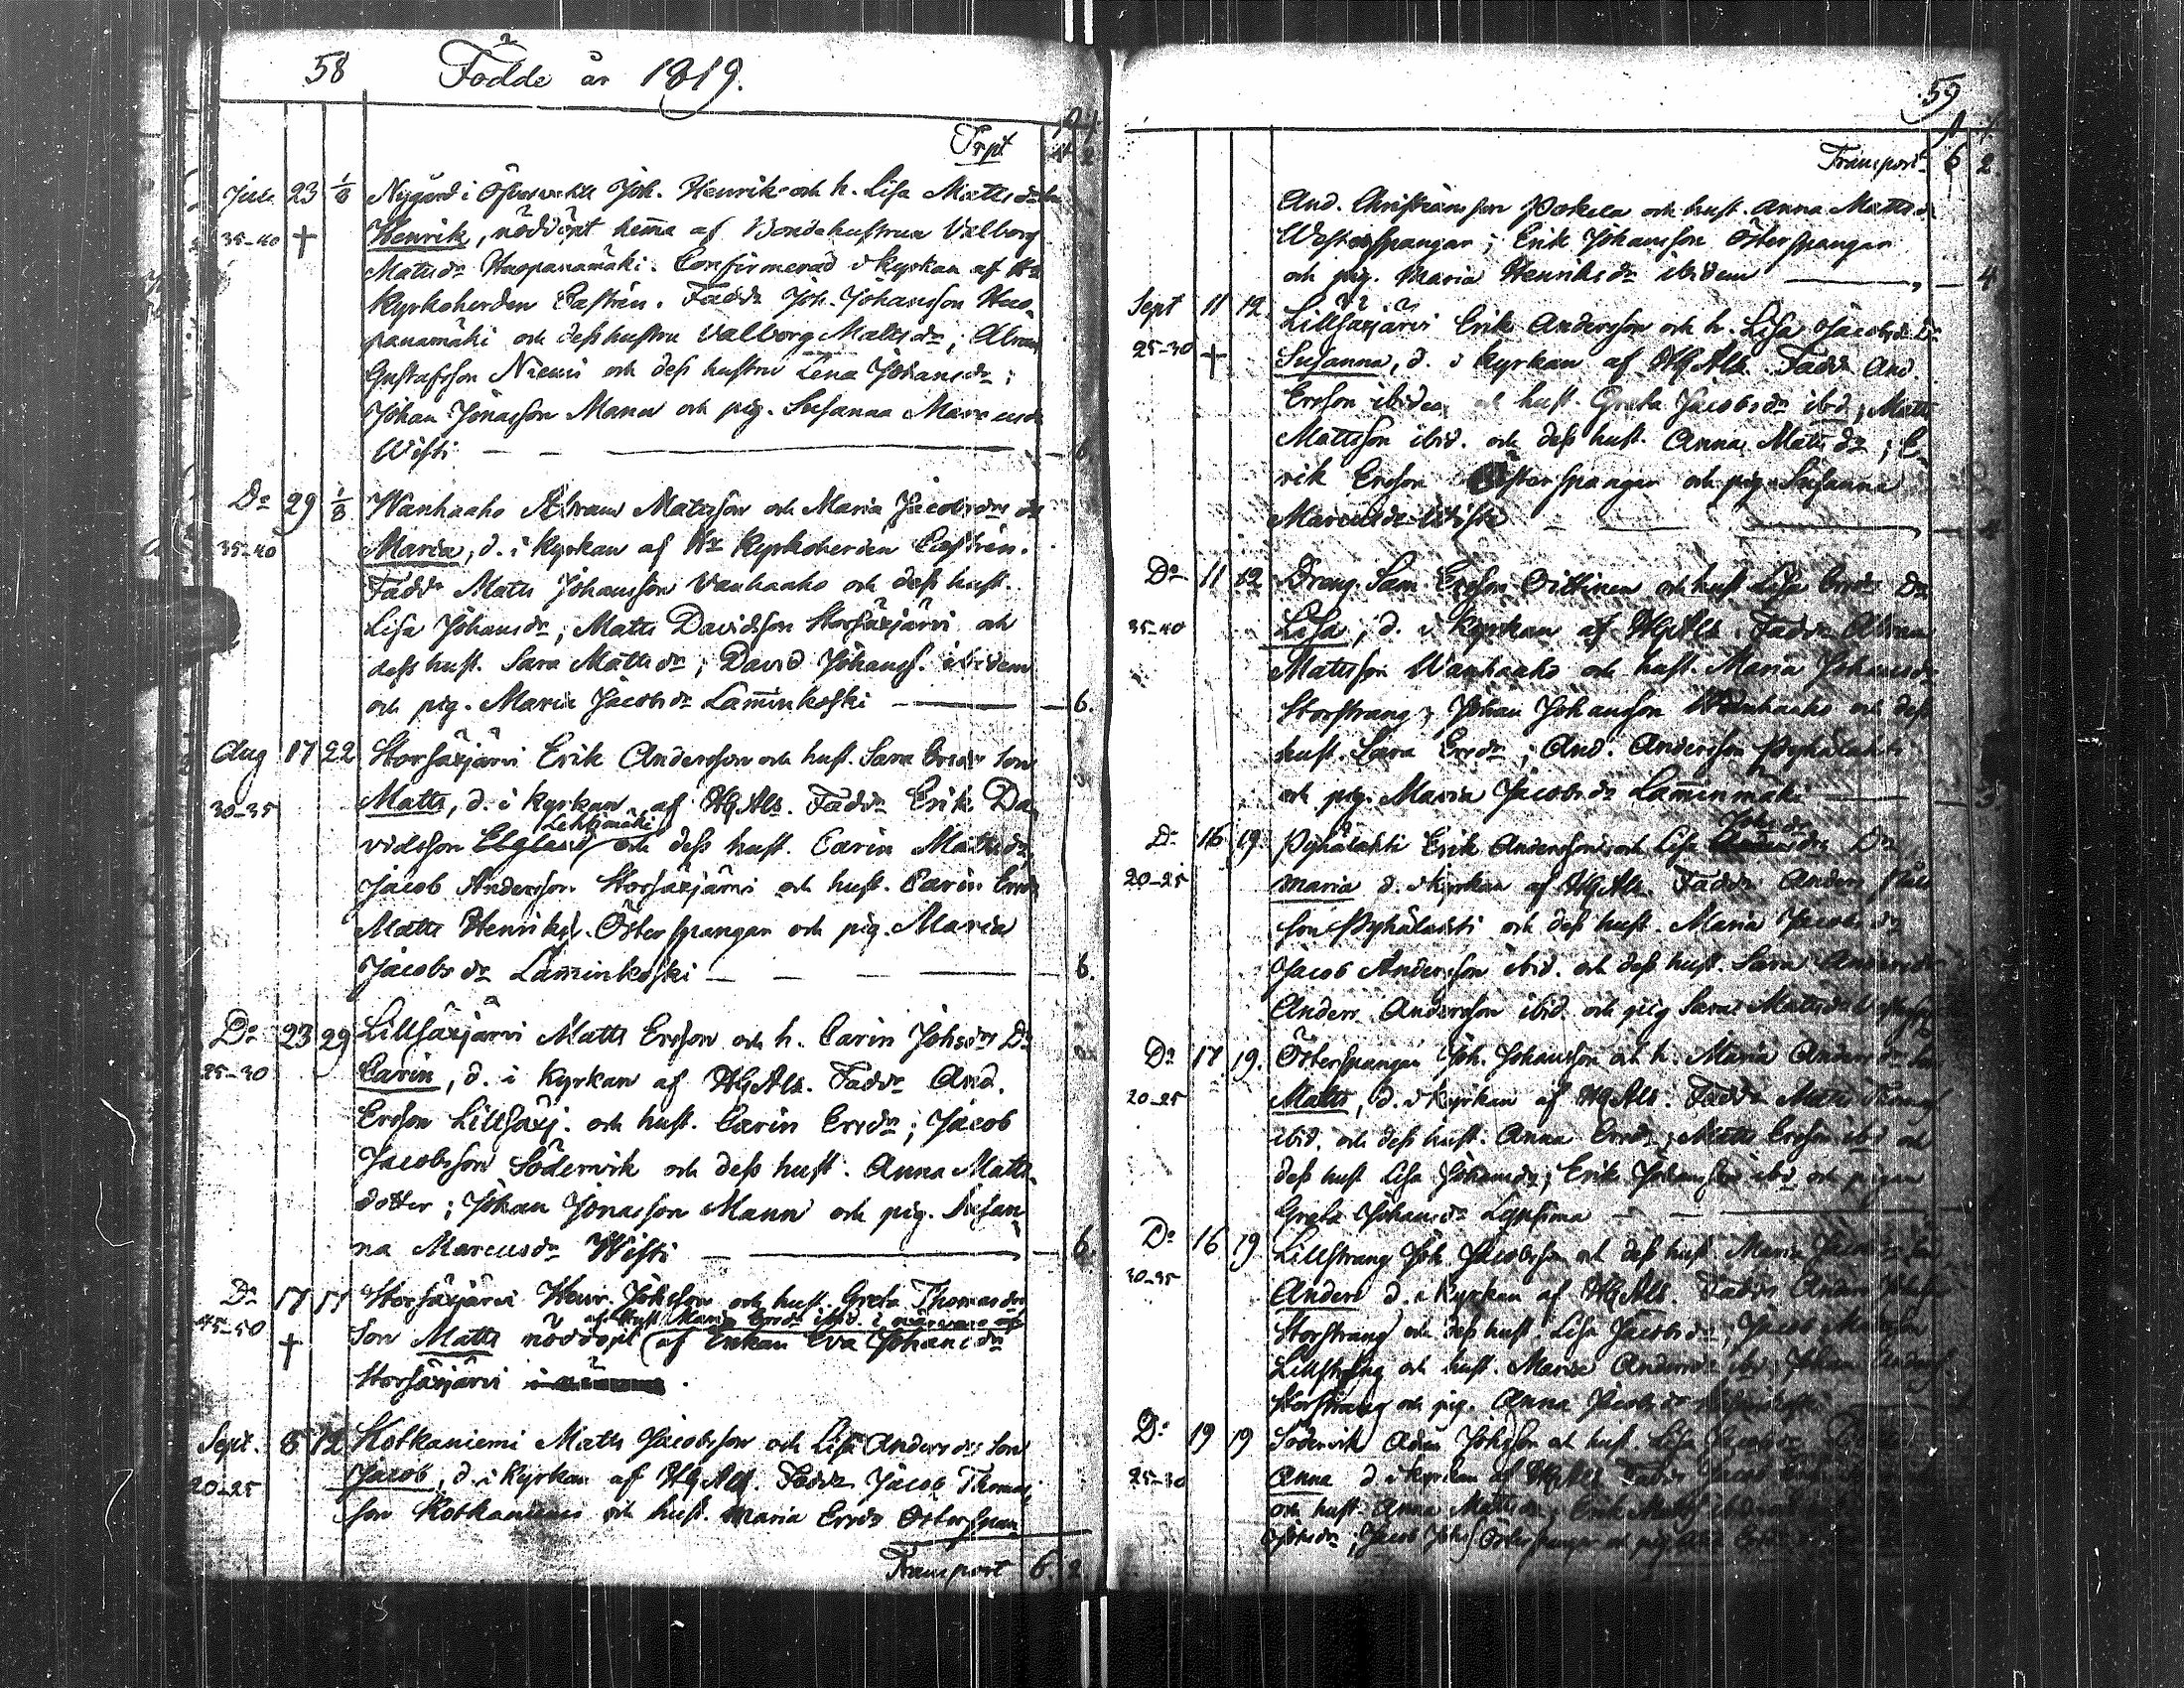 58 Födde år 1819.
Trpt 4 2
Juli 23 1/8 Nygård i Öfverveteli Joh. Henriks och h. Lisa Matts dr
35-40 † Henrik, nöddöpt hemma af Bondehustrun Valborg
Matts dr Haapanamäki. Confirmerad i kyrkan af Hr
Kyrkoherden Castrén. Faddr Joh. Johansson Haa-
panamäki och dess hustru Valborg Matts dr; Abram
Gustafsson Niemi och dess hustru Lena Johans dr;
Johan Jonasson Mann och pig. Susanna Marcus dr
Wisti 6
Do 29 1/8 Wanhaaho Abram Matsson och Maria Jacobs drs dr
35-40 Maria, d. i Kyrkan af Hr Kyrkoherden Castrén.
Faddr Matts Johansson Vanhaaho och dess hust.
Lisa Johans dr; Matts Davidsson Storsäxjärvi och
dess hust. Sara Matts dr; David Johanss. ibidem
och pig. Maria Jacobs dr Laminkoski 6.
Aug 17 22 Storsäxjärvi Erik Andersson och hust. Sara Ersdrs son
30-35 Matts, d. i kyrkan af HgAls. Faddr Erik Da-
Lehtimäki
vidsson och dess hust. Carin Matts dr;
Jacob Andersson Storsäxjärvi och hust. Carin Ersdr
Matts Henrikss. Österspangar och pig. Maria
Jacobs dr Laminkoski 6.
Do 23 29 Lillsäxjärvi Matts Ersson och h. Carin Johsdrs Dr
25-30 Carin, d. i Kyrkan af HgAls. Faddr And.
Ersson Lillsäxj. och hust. Carin Ersdr; Jacob
Jacobsson Södervik och dess hust. Anna Matts
dotter; Johan Jonasson Mann och pig. Susan-
na Marcus dr Wisti 6.
Do 17 17 Storsäxjärvi Henr. Johsson och hust. Greta Thomas drs
af hust. Maria Ersdr ibid. i närvaro af
45-50 † son Matts nöddöpt af Enkan Eva Johans dr
Storsäxjärvi
Sept. 8 12 Kotkaniemi Matts Jacobsson och Lisa Anders drs son
20-25 Jacob, d. i Kyrkan af HgAls. Faddr Jacob Thomas-
son Kotkaniemi och hust. Maria Ersdr Österspan
Transport 6. 2
59
Transport 6 2
And. Christiansson Pokela och hust. Anna Matts dr
Westerspangar; Erik Johansson Österspangar
och pig. Maria Henriks dr ibidem 4
Sept 11 12. Lillsäxjärvi Erik Andersson och h. Lisa Jacobs dr Dr
25-30 † Susanna, d. i kyrkan af HgAls. Faddr And.
Ersson ibidem och hust. Greta Jacobs dr ibid; Matts
Mattsson ibid. och dess hust. Anna Matts dr; E-
rik Ersson Österspangar och pig. Susanna
Marcus dr Wisti 4
Do 11 12 Dreng. Sam. Ersson Oittinen och hust Lisa Ersdr Dr
35-40 Lisa, d. i Kyrkan af HgAls. Faddr Abram
Matsson Wanhaaho och hust. Maria Johans dr
Storstrang; Johan Johansson Wanhaaho och dess
hust. Sara Ersdr; And. Andersson Pyhälahti
och pig. Maria Jacobs dr Laminmäki 3
Do 16 19. Pyhälahti Erik Anderssons och Lisa Johs drs Dr
20-25 Maria d. i Kyrkan af HgAls. Faddr Anders
son Pyhälahti och dess hust. Maria Jacobs dr
Jacob Andersson ibid. och dess hust. Sara Anders dr
Anders Andersson ibid och pig Sara Matts dr
Do 17. 19. Österspangar Joh. Johansson och h. Maria Anders dr son
20-25 Matts, d. i Kyrkan af HgAls. Faddr Matts Thomass
ibid. och dess hust. Anna Ersdr; Matts Ersson ibid och
dess hust Lisa Johans dr; Erik Johansson ibid och pigan
Greta Johans dr
Do 16 19 Lillstrang Joh Jacobsson och dess hust. Maria Jacobs dr son
30-35 Anders d. i Kyrkan af HgAls. Faddr Anders
Storstrang och dess hust. Lisa Jacobs dr; Jacob Mattsson
Lillstrang och hust. Maria Anders dr ibid; Johan
Storstrang och pig. Anna Jacobs dr
Do 19 19 Södervik Adam Johsson och hust. Lisa Jacobs dr
25-30 Anna d i kyrkan af HgAls Faddr Jacob
och hust. Anna Matts dr; Erik Matss
Johs dr; Jacob Johss Österspangar och pig